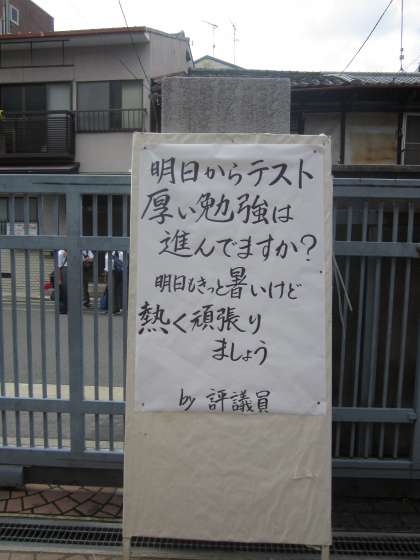 明日からテスト
厚い勉強は
進んでますか?
明日もきっと暑いけど
熱く頑張り
ましょう
by 評議員